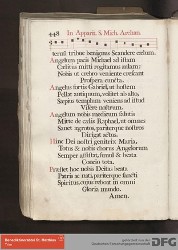 448 In Apparit. S. Mich. Archan.
tenui tribue benignus Scandere cælum.
Angelum pacis Michael ad istam
Cælitus mitti rogitamus aulam:
Nobis ut crebro veniente crescant
Prospera cuncta.
Angelus fortis Gabriel, ut hostem
Pellat antiquum, volitet ab alto,
Sæpius templum veniens ad istud
Visere nostrum.
Angelum nobis medicum salutis
Mitte de cælis Raphael, ut omnes
Sanet ægrotos, pariterque nostros
Dirigat actus.
Hinc Dei nostri genitrix Maria,
Totus & nobis chorus Angelorum
Semper assistat, simul & beata
Concio tota.
Præstet hoc nobis Deitas beata
Patris ac nati, pariterque sancti
Spiritus, cujus reboat in omni
Gloria mundo.
Amen.